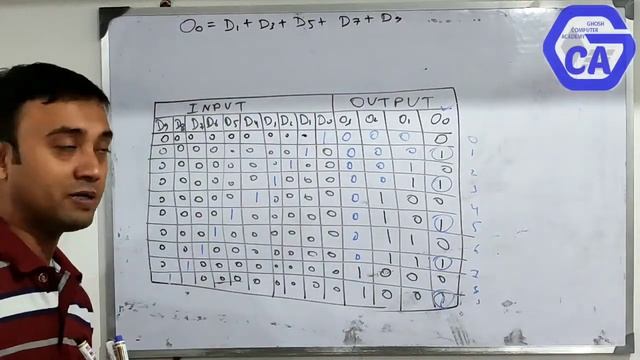 O₀ = D₁ + D₃ + D₅ + D₇ + D₉
GHOSH
COMPUTER
ACADEMY
CA
INPUT OUTPUT
D₉ D₈ D₇ D₆ D₅ D₄ D₃ D₂ D₁ D₀ O₃ O₂ O₁ O₀
0 0 0 0 0 0 0 0 0 1 0 0 0 0 0
0 0 0 0 0 0 0 0 1 0 0 0 0 1 1
0 0 0 0 0 0 0 1 0 0 0 0 1 0 2
0 0 0 0 0 0 1 0 0 0 0 0 1 1 3
0 0 0 0 0 1 0 0 0 0 0 1 0 0 4
0 0 0 0 1 0 0 0 0 0 0 1 0 1 5
0 0 0 1 0 0 0 0 0 0 0 1 1 0 6
0 0 1 0 0 0 0 0 0 0 0 1 1 1 7
0 1 0 0 0 0 0 0 0 0 1 0 0 0 8
1 0 0 0 0 0 0 0 0 0 1 0 0 1 9